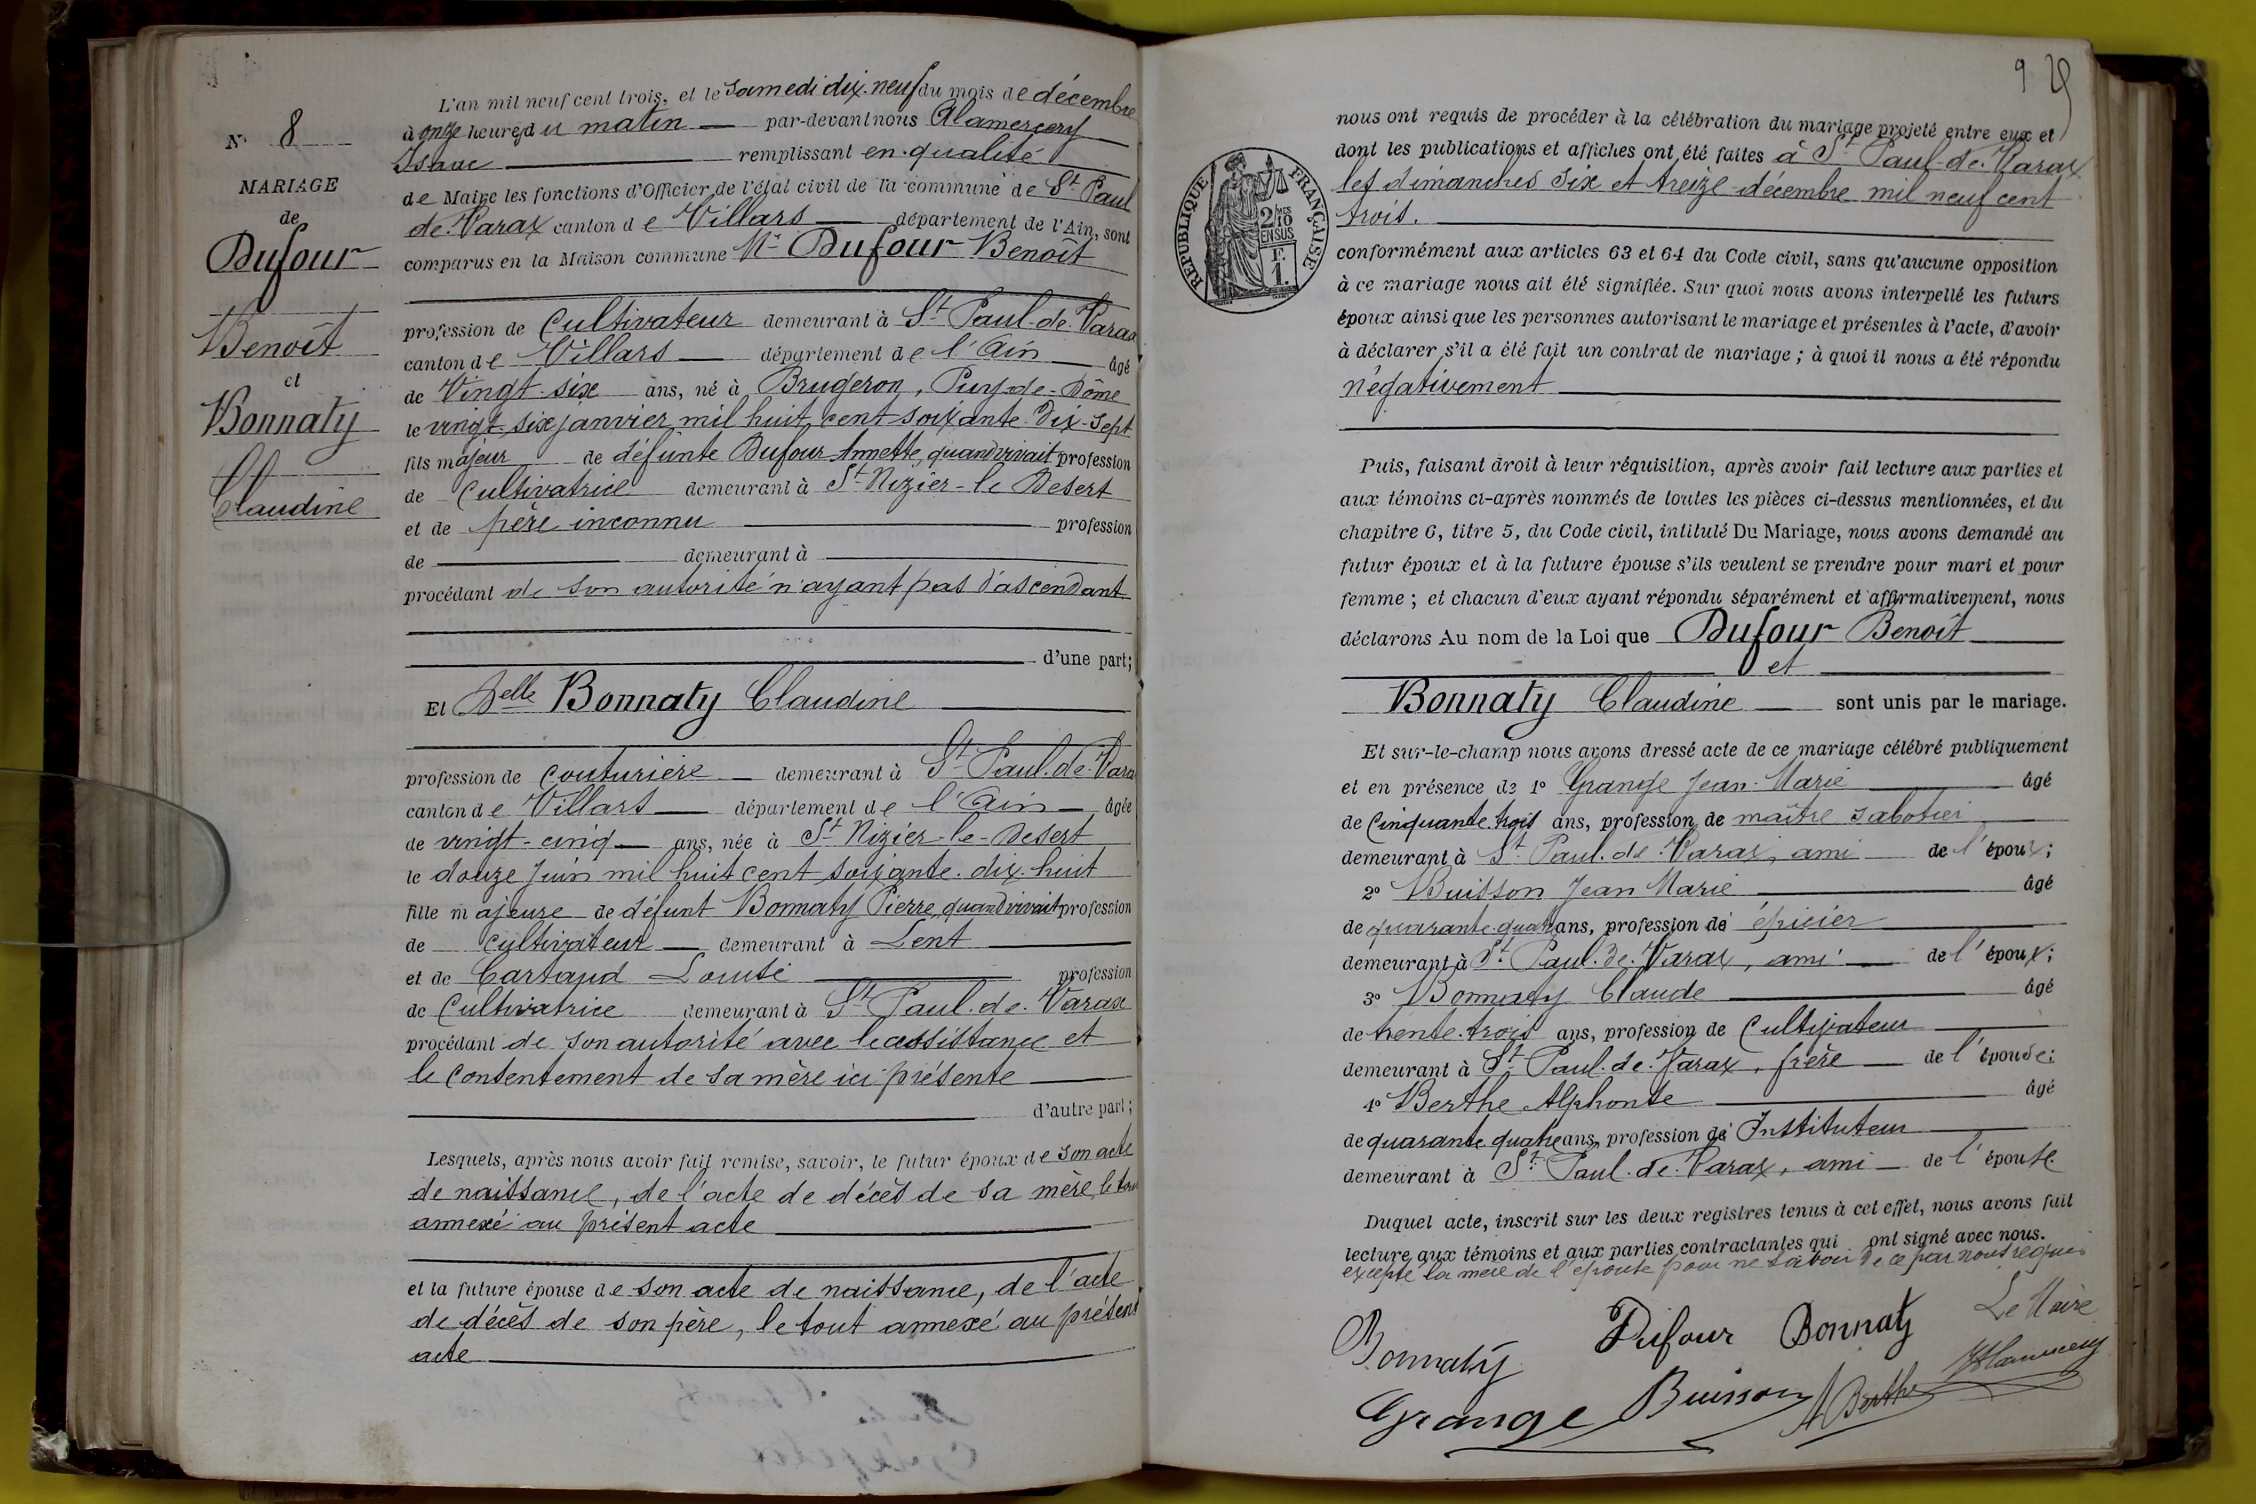 N° 8
MARIAGE
de
Dufour
Benoît
et
Bonnaty
Claudine
L'an mil neuf cent trois, et le samedi dix-neuf du mois de décembre
à onze heures du matin par-devant nous Alamercery
Isaac remplissant en qualité
de Maire les fonctions d'Officier de l'état civil de la commune de St Paul
de-Varax canton de Villars département de l'Ain, sont
comparus en la Maison commune Mr Dufour Benoît
profession de Cultivateur demeurant à St Paul-de-Varax
canton de Villars département de l'Ain âgé
de Vingt-six ans, né à Brugeron, Puy-de-Dôme
le vingt-six janvier mil huit cent soixante-dix-sept
fils majeur de défunte Dufour Annette, quand vivait profession
de Cultivatrice demeurant à St Nizier-le-Desert
et de père inconnu profession
de demeurant à
procédant de son autorité n'ayant pas d'ascendant
d'une part;
Et Delle Bonnaty Claudine
profession de couturière demeurant à St Paul-de-Varax
canton de Villars département de l'Ain âgée
de vingt-cinq ans, née à St Nizier-le-Desert
le douze Juin mil huit cent soixante-dix-huit
fille majeure de défunt Bonnaty Pierre, quand vivait profession
de cultivateur demeurant à Lent
et de Cartaud Louise profession
de Cultivatrice demeurant à St Paul-de-Varax
procédant de son autorité avec le assistance et
le consentement de sa mère ici présente
d'autre part;
Lesquels, après nous avoir fait remise, savoir, le futur époux de son acte
de naissance, de l'acte de décès de sa mère, le tout
annexé au présent acte
et la future épouse de son acte de naissance, de l'acte
de décès de son père, le tout annexé au présent
acte
9
nous ont requis de procéder à la célébration du mariage projeté entre eux et
dont les publications et affiches ont été faites à St Paul-de-Varax
les dimanches six et treize décembre mil neuf cent
trois.
RÉPUBLIQUE FRANÇAISE
2/10MES
EN SUS
F.
1.
conformément aux articles 63 et 64 du Code civil, sans qu'aucune opposition
à ce mariage nous ait été signifiée. Sur quoi nous avons interpellé les futurs
époux ainsi que les personnes autorisant le mariage et présentes à l'acte, d'avoir
à déclarer s'il a été fait un contrat de mariage ; à quoi il nous a été répondu
négativement
Puis, faisant droit à leur réquisition, après avoir fait lecture aux parties et
aux témoins ci-après nommés de toutes les pièces ci-dessus mentionnées, et du
chapitre 6, titre 5, du Code civil, intitulé Du Mariage, nous avons demandé au
futur époux et à la future épouse s'ils veulent se prendre pour mari et pour
femme ; et chacun d'eux ayant répondu séparément et affirmativement, nous
déclarons Au nom de la Loi que Dufour Benoît
et
Bonnaty Claudine sont unis par le mariage.
Et sur-le-champ nous avons dressé acte de ce mariage célébré publiquement
et en présence de 1° Grange Jean-Marie âgé
de Cinquante-trois ans, profession de maître sabotier
demeurant à St Paul-de-Varax, ami de l'époux;
2° Buisson Jean Marie âgé
de quarante-quatre ans, profession de épicier
demeurant à St Paul-de-Varax, ami de l'époux;
3° Bonnaty Claude âgé
de trente-trois ans, profession de Cultivateur
demeurant à St Paul-de-Varax, frère de l'épouse;
4° Berthe Alphonse âgé
de quarante quatre ans, profession de Instituteur
demeurant à St Paul-de-Varax, ami de l'épouse
Duquel acte, inscrit sur les deux registres tenus à cet effet, nous avons fait
lecture aux témoins et aux parties contractantes qui ont signé avec nous.
excepté la mère de l'épouse pour ne savoir de ce par nous requis
Bonnaty Dufour Bonnaty Le Maire
Grange Buisson A Berthe Alamercery